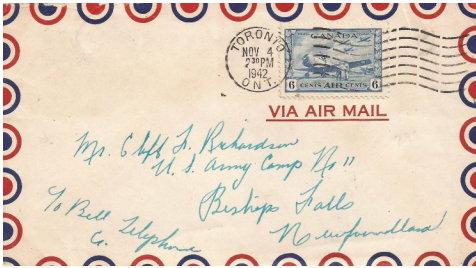 TORONTO
NOV 4
2 30 PM
1942
ONT.
CANADA
6 CENTS AIR CENTS 6
VIA AIR MAIL
Mr. Cliff F. Richardson
U.S. Army Camp No 11
Bishops Falls
Newfoundland
To Bell Telephone
Co.